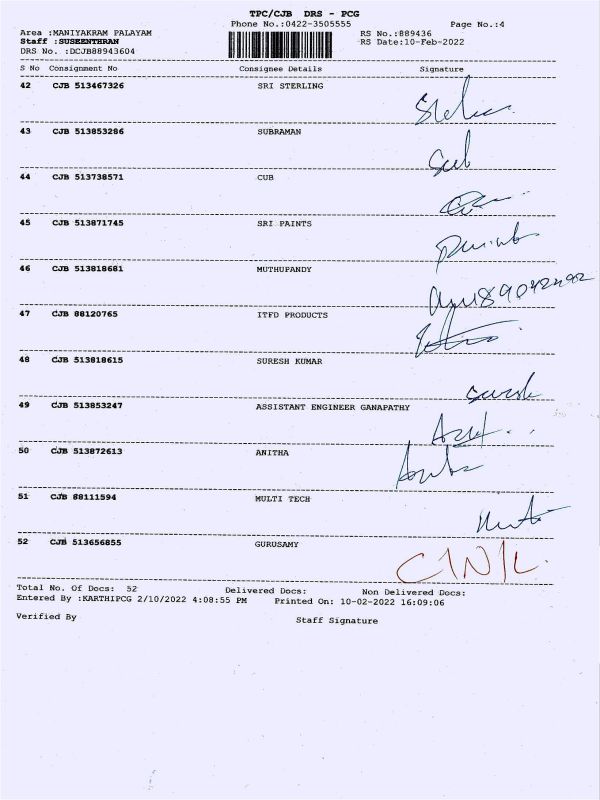 TPC/CJB DRS - PCG
Phone No.:0422-3505555 Page No.:4
Area :MANIYAKRAM PALAYAM RS No.:889436
Staff :SUSEENTHRAN RS Date:10-Feb-2022
DRS No. :DCJB88943604
S No Consignment No Consignee Details Signature
42 CJB 513467326 SRI STERLING
43 CJB 513853286 SUBRAMAN
Sub
44 CJB 513738571 CUB
45 CJB 513871745 SRI PAINTS
46 CJB 513818681 MUTHUPANDY
47 CJB 88120765 ITFD PRODUCTS
48 CJB 513818615 SURESH KUMAR
Suresh
49 CJB 513853247 ASSISTANT ENGINEER GANAPATHY
50 CJB 513872613 ANITHA
51 CJB 88111594 MULTI TECH
52 CJB 513656855 GURUSAMY
Total No. Of Docs: 52 Delivered Docs: Non Delivered Docs:
Entered By :KARTHIPCG 2/10/2022 4:08:55 PM Printed On: 10-02-2022 16:09:06
Verified By Staff Signature